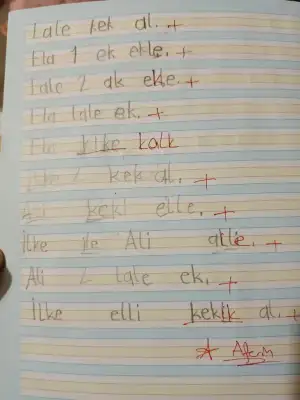 Lale kek al. +
Ela 1 ek ekle. +
Lale 2 ak ekle. +
Ela lale ek. +
Ela kalk
2 kek al. +
elle. +
İlke ile Ali atle. +
Ali 2 lale ek. +
İlke elli keklik al. +
Aferin